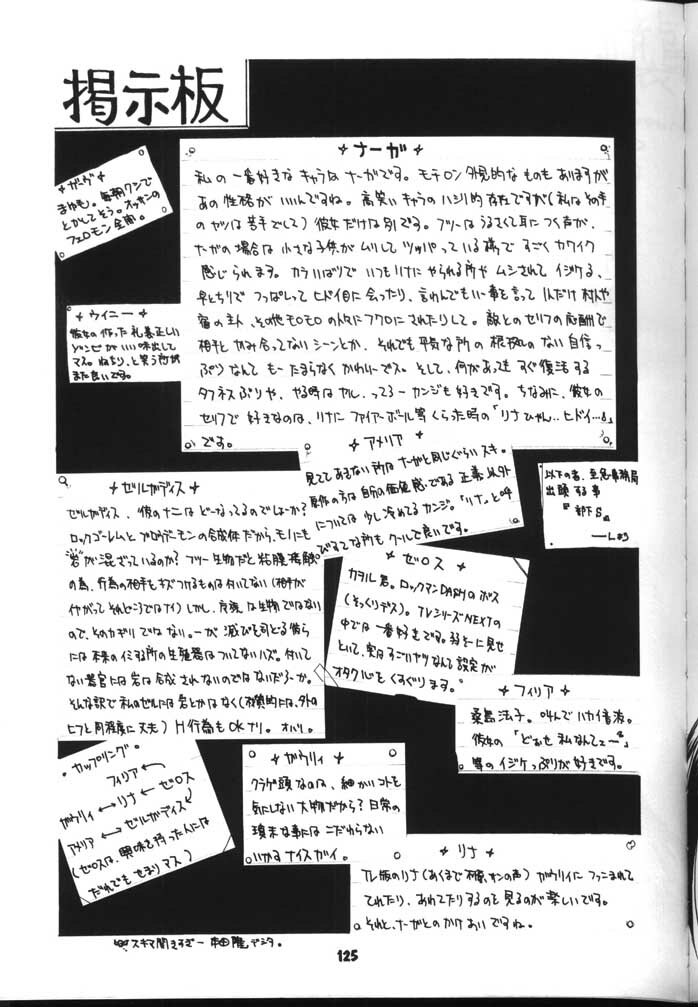 掲示板
ナーガ
私の一番好きなキャラはナーガです。モチロン外見的なものもありますが
あの性格がいいんですね。高笑いキャラのハシリ的存在ですが(私は
のヤツは苦手でして)彼女だけは別です。フツーはうるさくて耳につく声が、
ナーガの場合は小さな子供がムリしてツッパっている様ですごくカワイク
感じられます。カラいばりでいつもリナにやられる所やムシされてイジケる、
早とちりでつっぱしってヒドイ目に会ったり、言わんでもいい事を言って
宿の主人、その他モロモロの人々にフクロにされたりして。敵とのセリフの応酬で
相手とかみ合ってないシーンとか、それでも平気な所の根拠のない自信っ
ぷりなんてもーたまらなくかわいーでス。そして、何があってもすぐ復活する
タフネスぶりや、やる時はヤル、ってろーカンジも好きです。ちなみに、彼女の
セリフで好きなのは、リナにファイアーボール等くらった時の「リナひゃん‥ヒドイ…」
です。
ガーヴ
まゆも。毎朝クシで
とかしてそう。オッサンの
フェロモン全開。
ウイニー
彼女の作った礼義正しい
ゾンビがいい味出して
マス。ねちり、と笑う
また良いです。
アメリア
見ててあきない所はナーガと同じぐらいスキ。
原作の方は自分の価値感である正義以外
については少し冷めてるカンジ。「リナ」と呼
びすてな所もクールで良いです。
以下の者、至急事務局
出頭する事
『部下S』
ゼルガディス
ゼルガディス、彼のナニはどーなってるのでしょーか?
ロックゴーレムとブロウデーモンの合成体だから、モノにも
岩が混ざっているのか?フツー生物だと粘膜
の為、行為の相手をキズつけるものは付いてない(相手が
イヤがってそれどころではナイ)しかし、
ので、そのカギリではない。ーが 滅びを司どる彼ら
には本来のイミする所の生殖器はついてないハズ。付いて
ない器官には岩は合成されないのではないだろーか。
そんな訳で私のゼルには岩とかはなく(材質的には、外の
ヒフと同程度に丈夫)H行為もOKナリ。オハリ。
ゼロス
カヲル君。ロックマンDASHのボス
(そっくりデス)。TVシリーズNEXTの
中では一番好きです。弱そーに見せ
といて、実はすごいヤツなんて設定が
オタク心をくすぐります。
フィリア
桑島法子。叫んでハカイ音波。
彼女の「どぉせ私なんてェ〜」
等のイジケっぷりが好きです。
カップリング
フィリア
ガウリィ ←→ リナ ← ゼロス
アメリア ←→ ゼルガディス
(ゼロスは、興味を持った人には
だれでもせまりマス)
ガウリィ
クラゲ頭なのは、細かいコトを
気にしない大物だから?日常の
瑣末な事にはこだわらない
いかすナイスガイ。
リナ
TV版のリナ(あくまで林原サンの声)ガウリイにファニまれて
てれたり、あれてたりするのを見るのが楽しいです。
それと、ナーガとのかけあいですね。
スキマ開きすぎー 本田 デシタ。
125